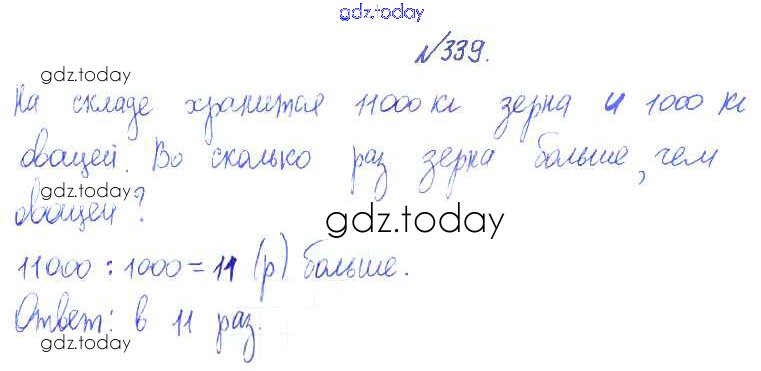 gdz.today
№339.
gdz.today
На складе хранится 11000 кг зерна и 1000 кг
овощей. Во сколько раз зерна больше, чем
gdz.today
овощей?
gdz.today
11000 : 1000 = 11 (р) больше.
Ответ: в 11 раз.
gdz.today